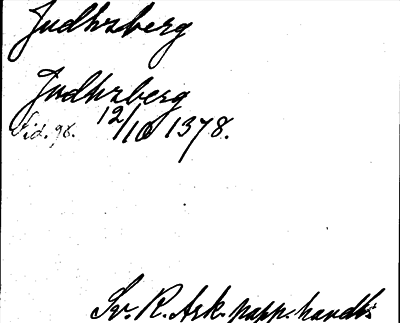 Judhrsberg
Judhrsberg
Vid. 96. 12/10 1378.
Sv. R. Ark. papp. handl: